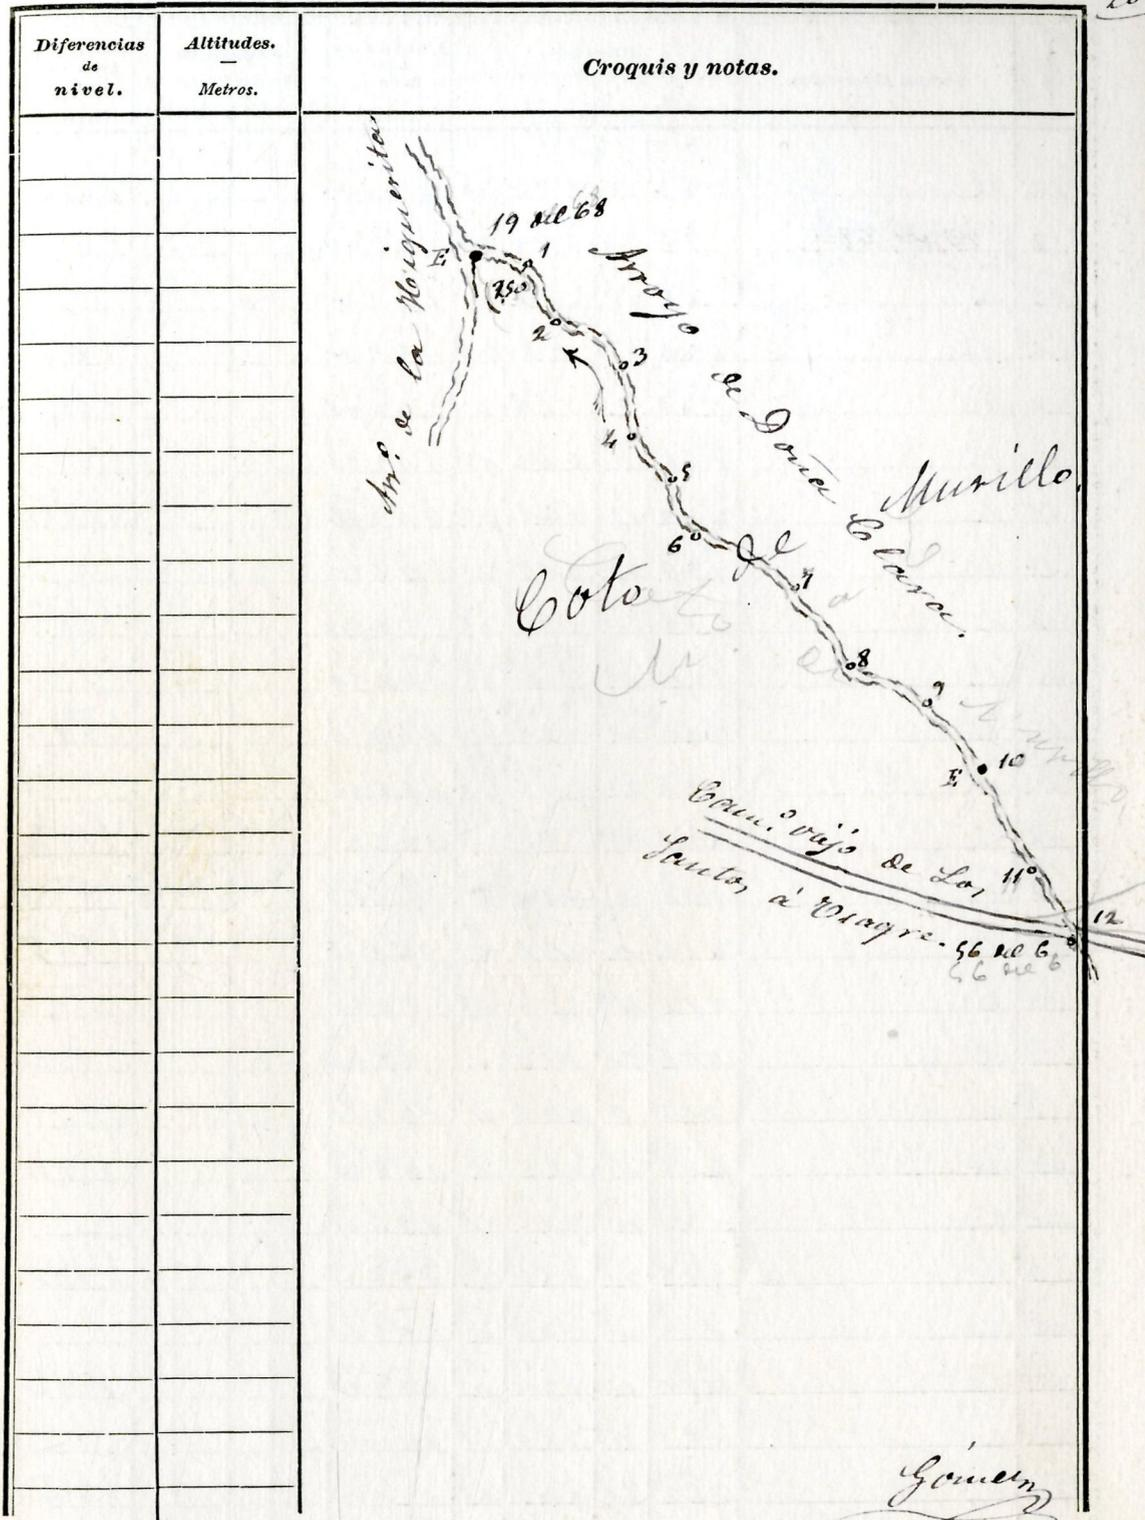 Diferencias
de
nivel.
Altitudes.
—
Metros.
Croquis y notas.
Arr.º de la Higuerita
19 del 68
E
1
(25º
2
3
4
5
6
7
8
9
10
E
11
12
Arroyo de Doña Clara.
Coto de Murillo.
Cam.º viejo de Los
Santos á Usagre.
56 del 6
56 del 6
Gómez